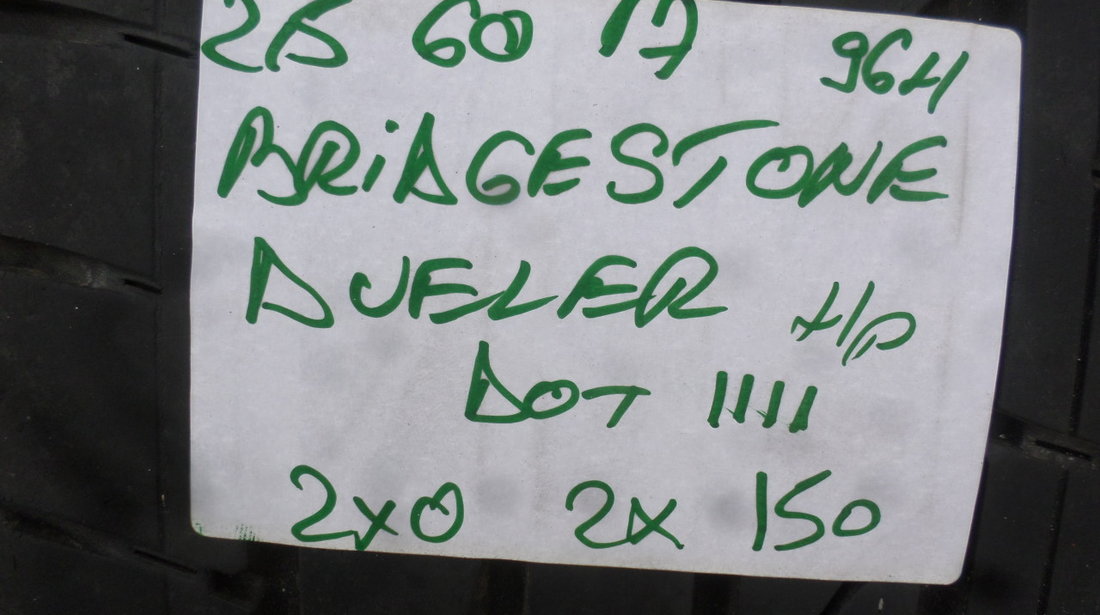 25 60 17 96H
BRIDGESTONE
DUELER H/P
DOT 1111
2x0 2x 150